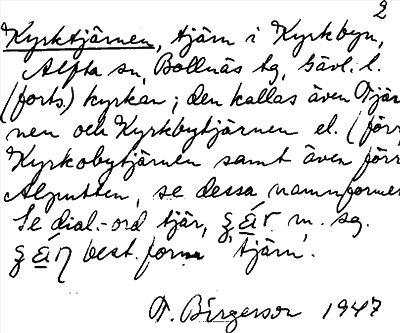 2
Kyrktjärnen, tjärn i Kyrkbyn,
Alfta sn, Bollnäs tg, Gävl. l.
(forts.) kyrkan; den kallas även Tjär
nen och Kyrkbytjärnen el. (förr
Kyrkobytjärnen samt även förr
Alputten, se dessa namnformer
Se dial.-ord tjär, m. sg.
best. form 'tjärn'.
T. Birgerson 1947